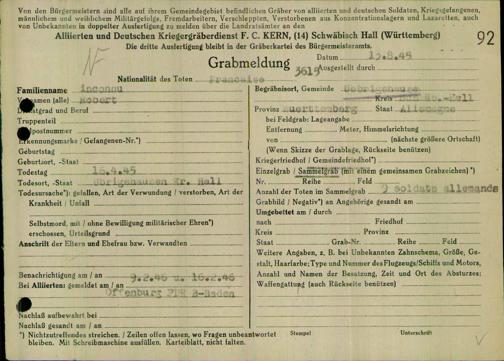 Von den Bürgermeistern sind alle auf ihrem Gemeindegebiet befindlichen Gräber von alliierten und deutschen Soldaten, Kriegsgefangenen,
männlichen und weiblichen Militärgelolge, Fremdarbeitern, Verschleppten, Verstorbenen aus Konzentrationslagern und Lazaretten, auch
von Unbekannten in doppelter Ausfertigung zu melden über die Landratsämter an den
Alliierten und Deutschen Kriegergräberdienst F. C. KERN, (14) Schwäbisch Hall (Württemberg)
Die dritte Ausfertigung bleibt in der Gräberkartei des Bürgermeisteramts.
92
Datum 19.8.45
Grabmeldung
3615 Ausgestellt durch
Nationalität des Toten Francaise
Familienname inconnu
Vornamen (alle) Robert
Dienstgrad und Beruf
Truppenteil
Feldpostnummer
Erkennungsmarke / Gefangenen-Nr.*)
Geburtstag
Geburtsort, -Staat
Todestag 16.4.45
Todesort, -Staat Übrigshausen Kr. Hall
Todesursache*): gefallen, Art der Verwundung / verstorben, Art der
Krankheit / Unfall
Selbstmord, mit / ohne Bewilligung militärischer Ehren*)
erschossen, Urteilsgrund
Anschrift der Eltern und Ehefrau bzw. Verwandten
Benachrichtigung am / an 9.2.46 u. 16.2.46
Bei Alliierten: gemeldet am / an
Offenburg PDR B-Baden
Nachlaß aufbewahrt bei
Nachlaß gesandt am / an
*) Nichtzutreffendes streichen. / Zeilen offen lassen, wo Fragen unbeantwortet
bleiben. Mit Schreibmaschine ausfüllen. Karteiblatt, nicht falten.
Begräbnisort, Gemeinde Uebrigshause
Kreis Hall
Provinz Wuerttemberg Staat Allemagne
bei Feldgrab: Lageangabe
Entfernung Meter, Himmelsrichtung
von (nächste größere Ortschaft)
(Wenn Skizze der Grablage, Rückseite benützen)
Kriegerfriedhof / Gemeindefriedhof*)
Einzelgrab / Sammelgrab (mit einem gemeinsamen Grabzeichen) *)
Nr. Reihe Feld
Anzahl der Toten im Sammelgrab 9 Soldats allemands
Grabbild / Negativ*) an Angehörige gesandt am
Umgebettet am / durch
nach Friedhof
Kreis Provinz
Staat Grab-Nr. Reihe Feld
Weitere Angaben, z. B. bei Unbekannten Zahnschema, Größe, Ge-
stalt, Haarfarbe; Type und Nummer des Flugzeugs/Schiffs und Motors,
Anzahl und Namen der Besatzung, Zeit und Ort des Absturzes;
Waffengattung (auch Rückseite benützen)
Stempel Unterschrift